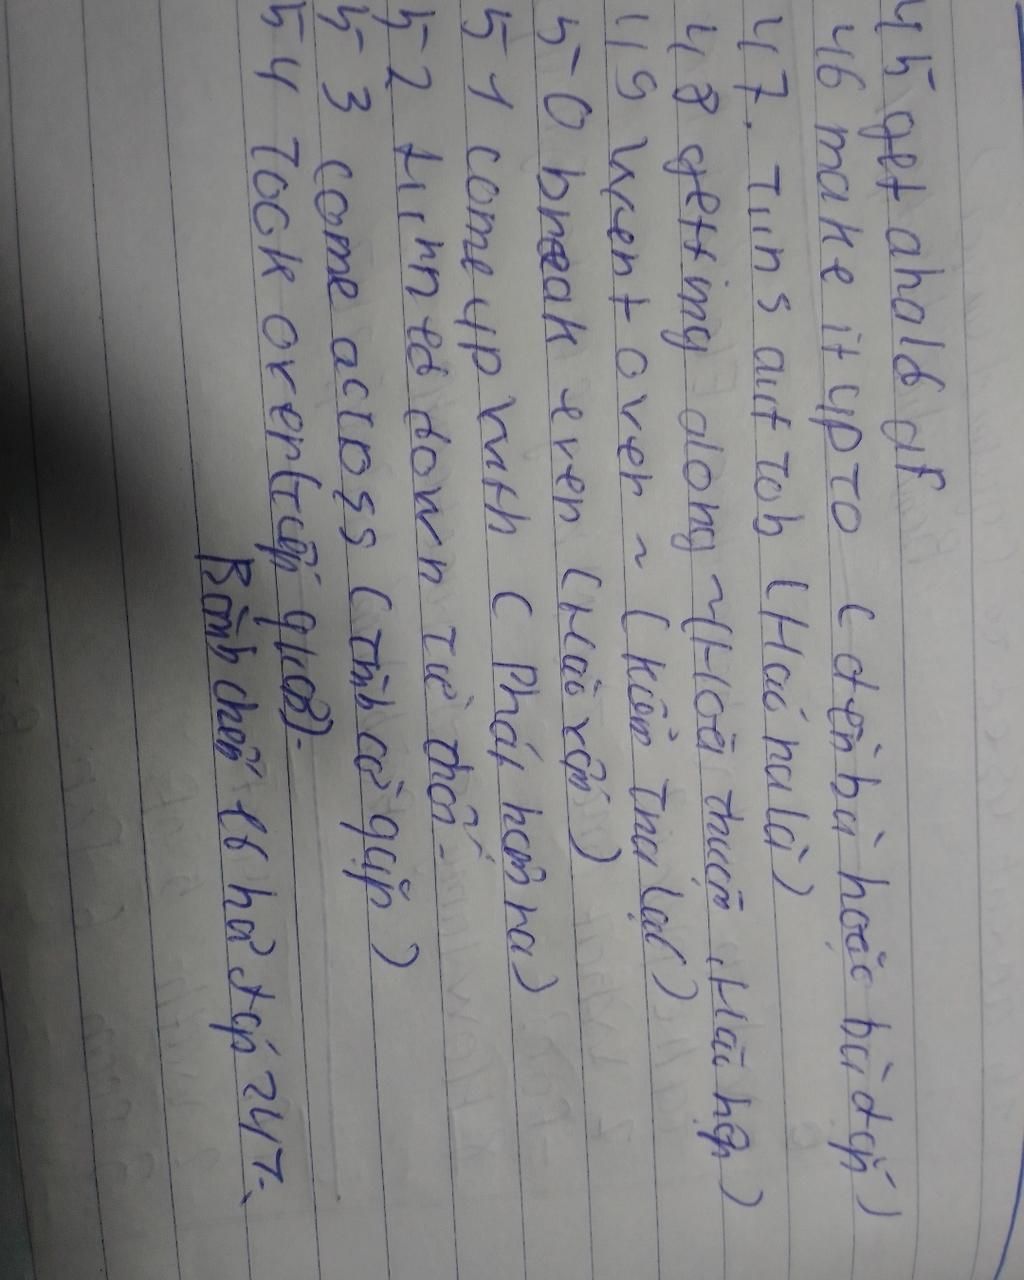 45 get ahold of
46 make it up to ( đền bù hoặc bù đắp )
47. Tuns out tob (Hoá ra là)
48 getting along ~ (Hoà thuận, Hoà hợp)
49 went over ~ ( kiểm tra lại )
50 break even (Hoà vốn)
51 come up with ( Phát hiện ra)
52 turned down từ chối.
53 come across ( tình cờ gặp )
54 Took over (tiếp quản).